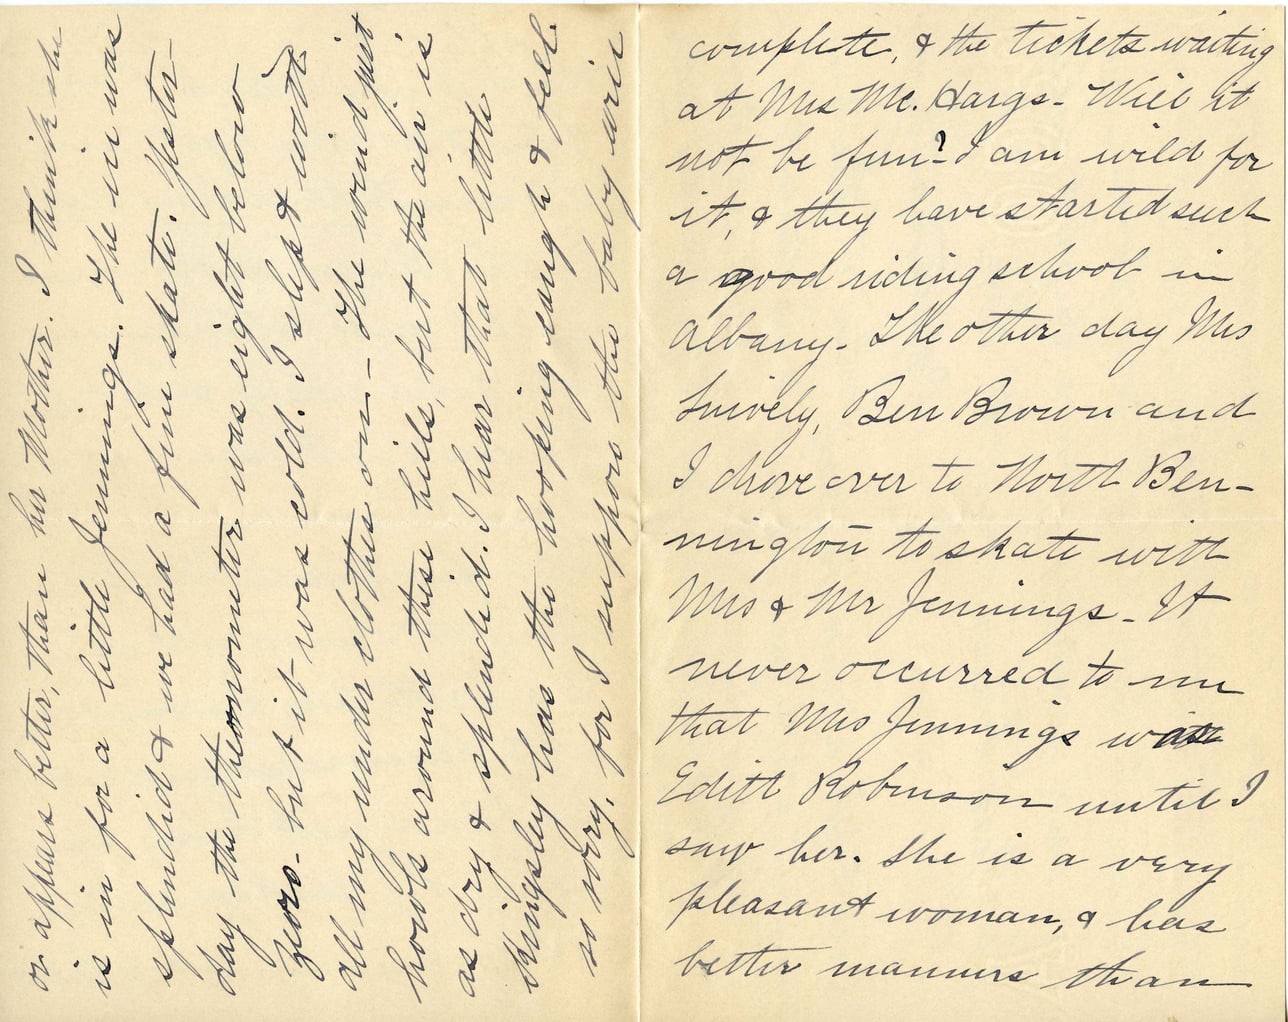 complete, & the tickets waiting
at Mrs Mc. Hargs - Will it
not be fun? I am wild for
it, & they have started such
a good riding school in
Albany - The other day Mrs
Snively, Ben Brown and
I drove over to North Ben-
nington to skate with
Mrs & Mr Jennings - It
never occurred to me
that Mrs Jennings was
Edith Robinson until I
saw her. She is a very
pleasant woman, & has
better manners than
or appears better, than her Mother. I think she
is in for a little Jennings. The ice was
splendid & we had a fine skate. Yester-
day the theomometer was eight below
zero - but it was cold. I slept with
all my under clothes on - The wind just
howls around these hills, but the air is
as dry & splendid. I hear that little
Kingsley has the hooping cough & feel
so sorry, for I suppose the baby will